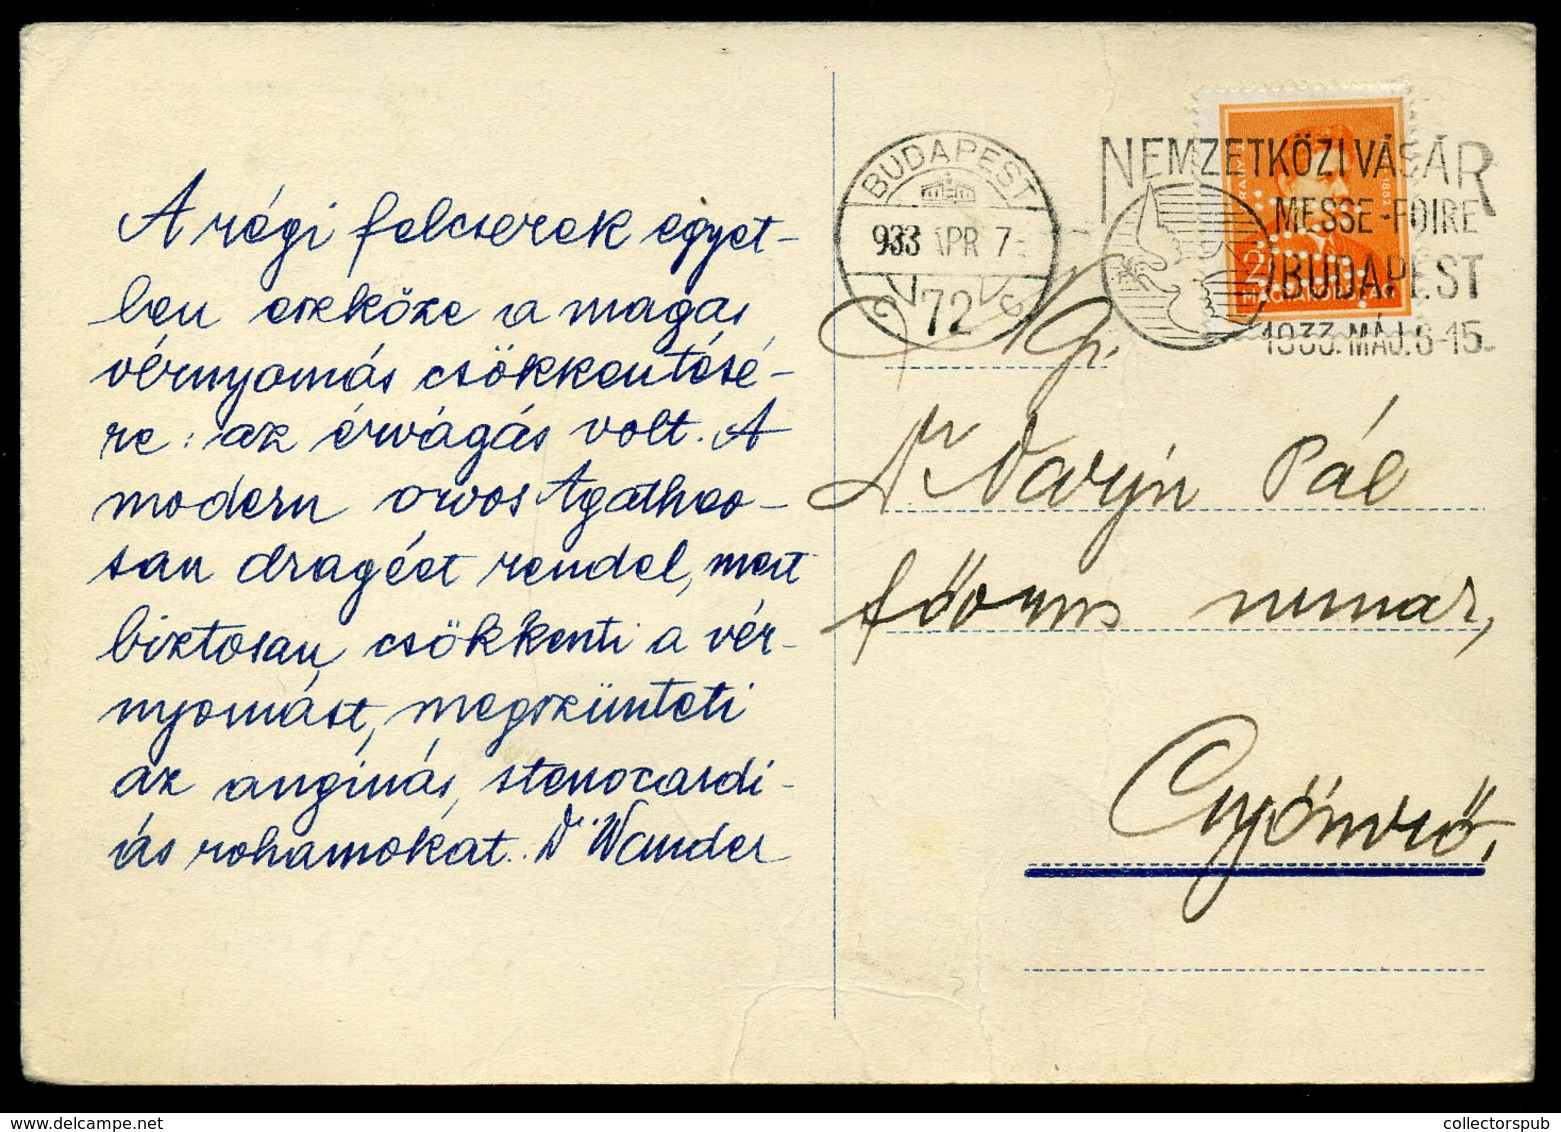 A régi felcserek egyet-
len eszköze a magas
vérnyomás csökkentésé-
re: az érvágás volt. A
modern orvos Agatheo-
san dragéet rendel, mert
biztosan csökkenti a vér-
nyomást, megszünteti
az anginás, stenocardi-
ás rohamokat. Dr Wander
BUDAPEST
933 APR 7
72
NEMZETKÖZI VÁSÁR
MESSE-FOIRE
BUDAPEST
1933. MÁJ. 6-15
1882
Ngs.
Dr Pál
főorvos
Gyömrő.
collectorspub